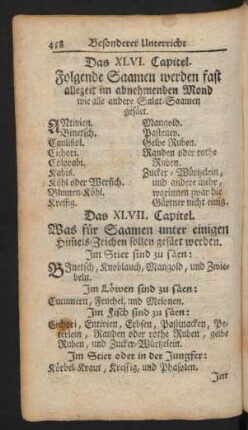 458 Besonderer Unterricht
Das XLVI. Capitel.
Folgende Saamen werden fast
allezeit im abnehmenden Mond
wie alle andere Salat-Saamen
gesäet.
ANtivien. Mangold.
Binetsch. Pastenen.
Gelbe Ruben.
Cichori. Randen oder rothe
Colorabi. Ruben.
Kabis. Zucker-Würtzelein,
Köhl oder Wersich. und andere mehr,
Blumen-Köhl. worinnen zwar die
Kressig. Gärtner nicht einig.
Das XLVII. Capitel.
Was für Saamen unter einigen
Him̃els-Zeichen sollen gesäet werden.
Im Stier sind zu säen:
BInetsch, Knoblauch, Mangold, und Zwie-
beln.
Im Löwen sind zu säen:
Cucumern, Fenchel, und Melonen.
Im Fisch sind zu säen:
Cichori, Entivien, Erbsen, Pastinacken, Pe-
terlein, Randen oder rothe Ruben, gelbe
Ruben, und Zucker-Würtzelein.
Im Stier oder in der Jungfer:
Körbel-Kraut, Kressig, und Phasolen.